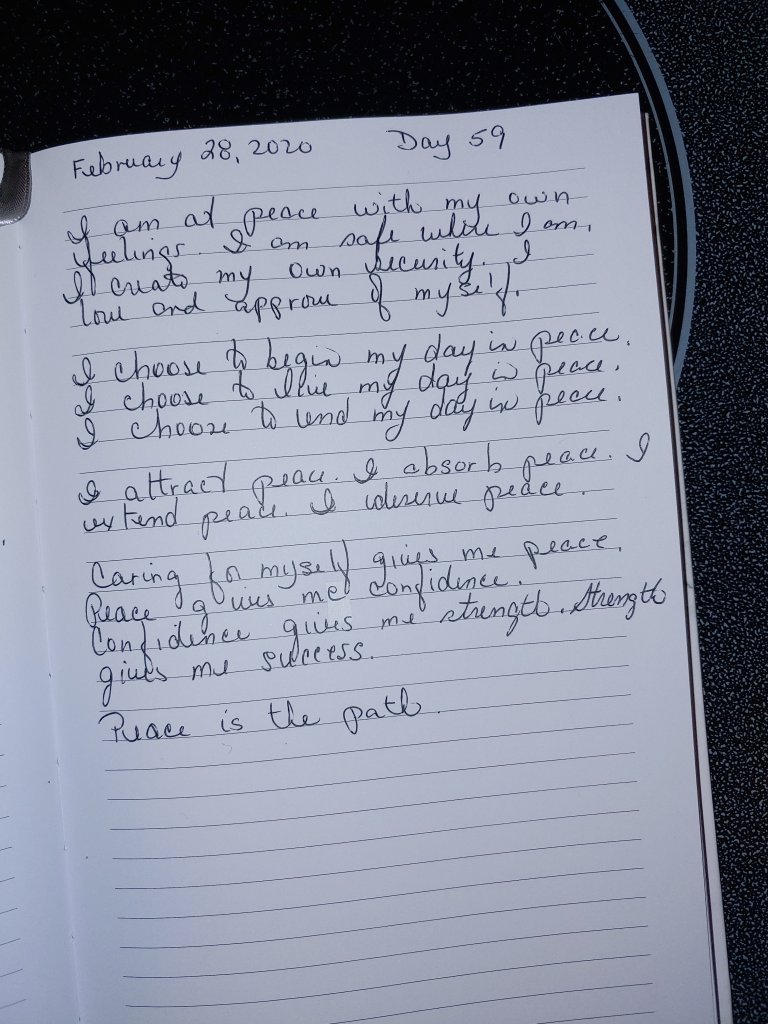 February 28, 2020 Day 59
I am at peace with my own
feelings. I am safe where I am.
I create my own security. I
love and approve of myself.
I choose to begin my day in peace.
I choose to live my day in peace.
I choose to end my day in peace.
I attract peace. I absorb peace. I
extend peace. I deserve peace.
Caring for myself gives me peace.
Peace gives me confidence.
Confidence gives me strength. Strength
gives me success.
Peace is the path.